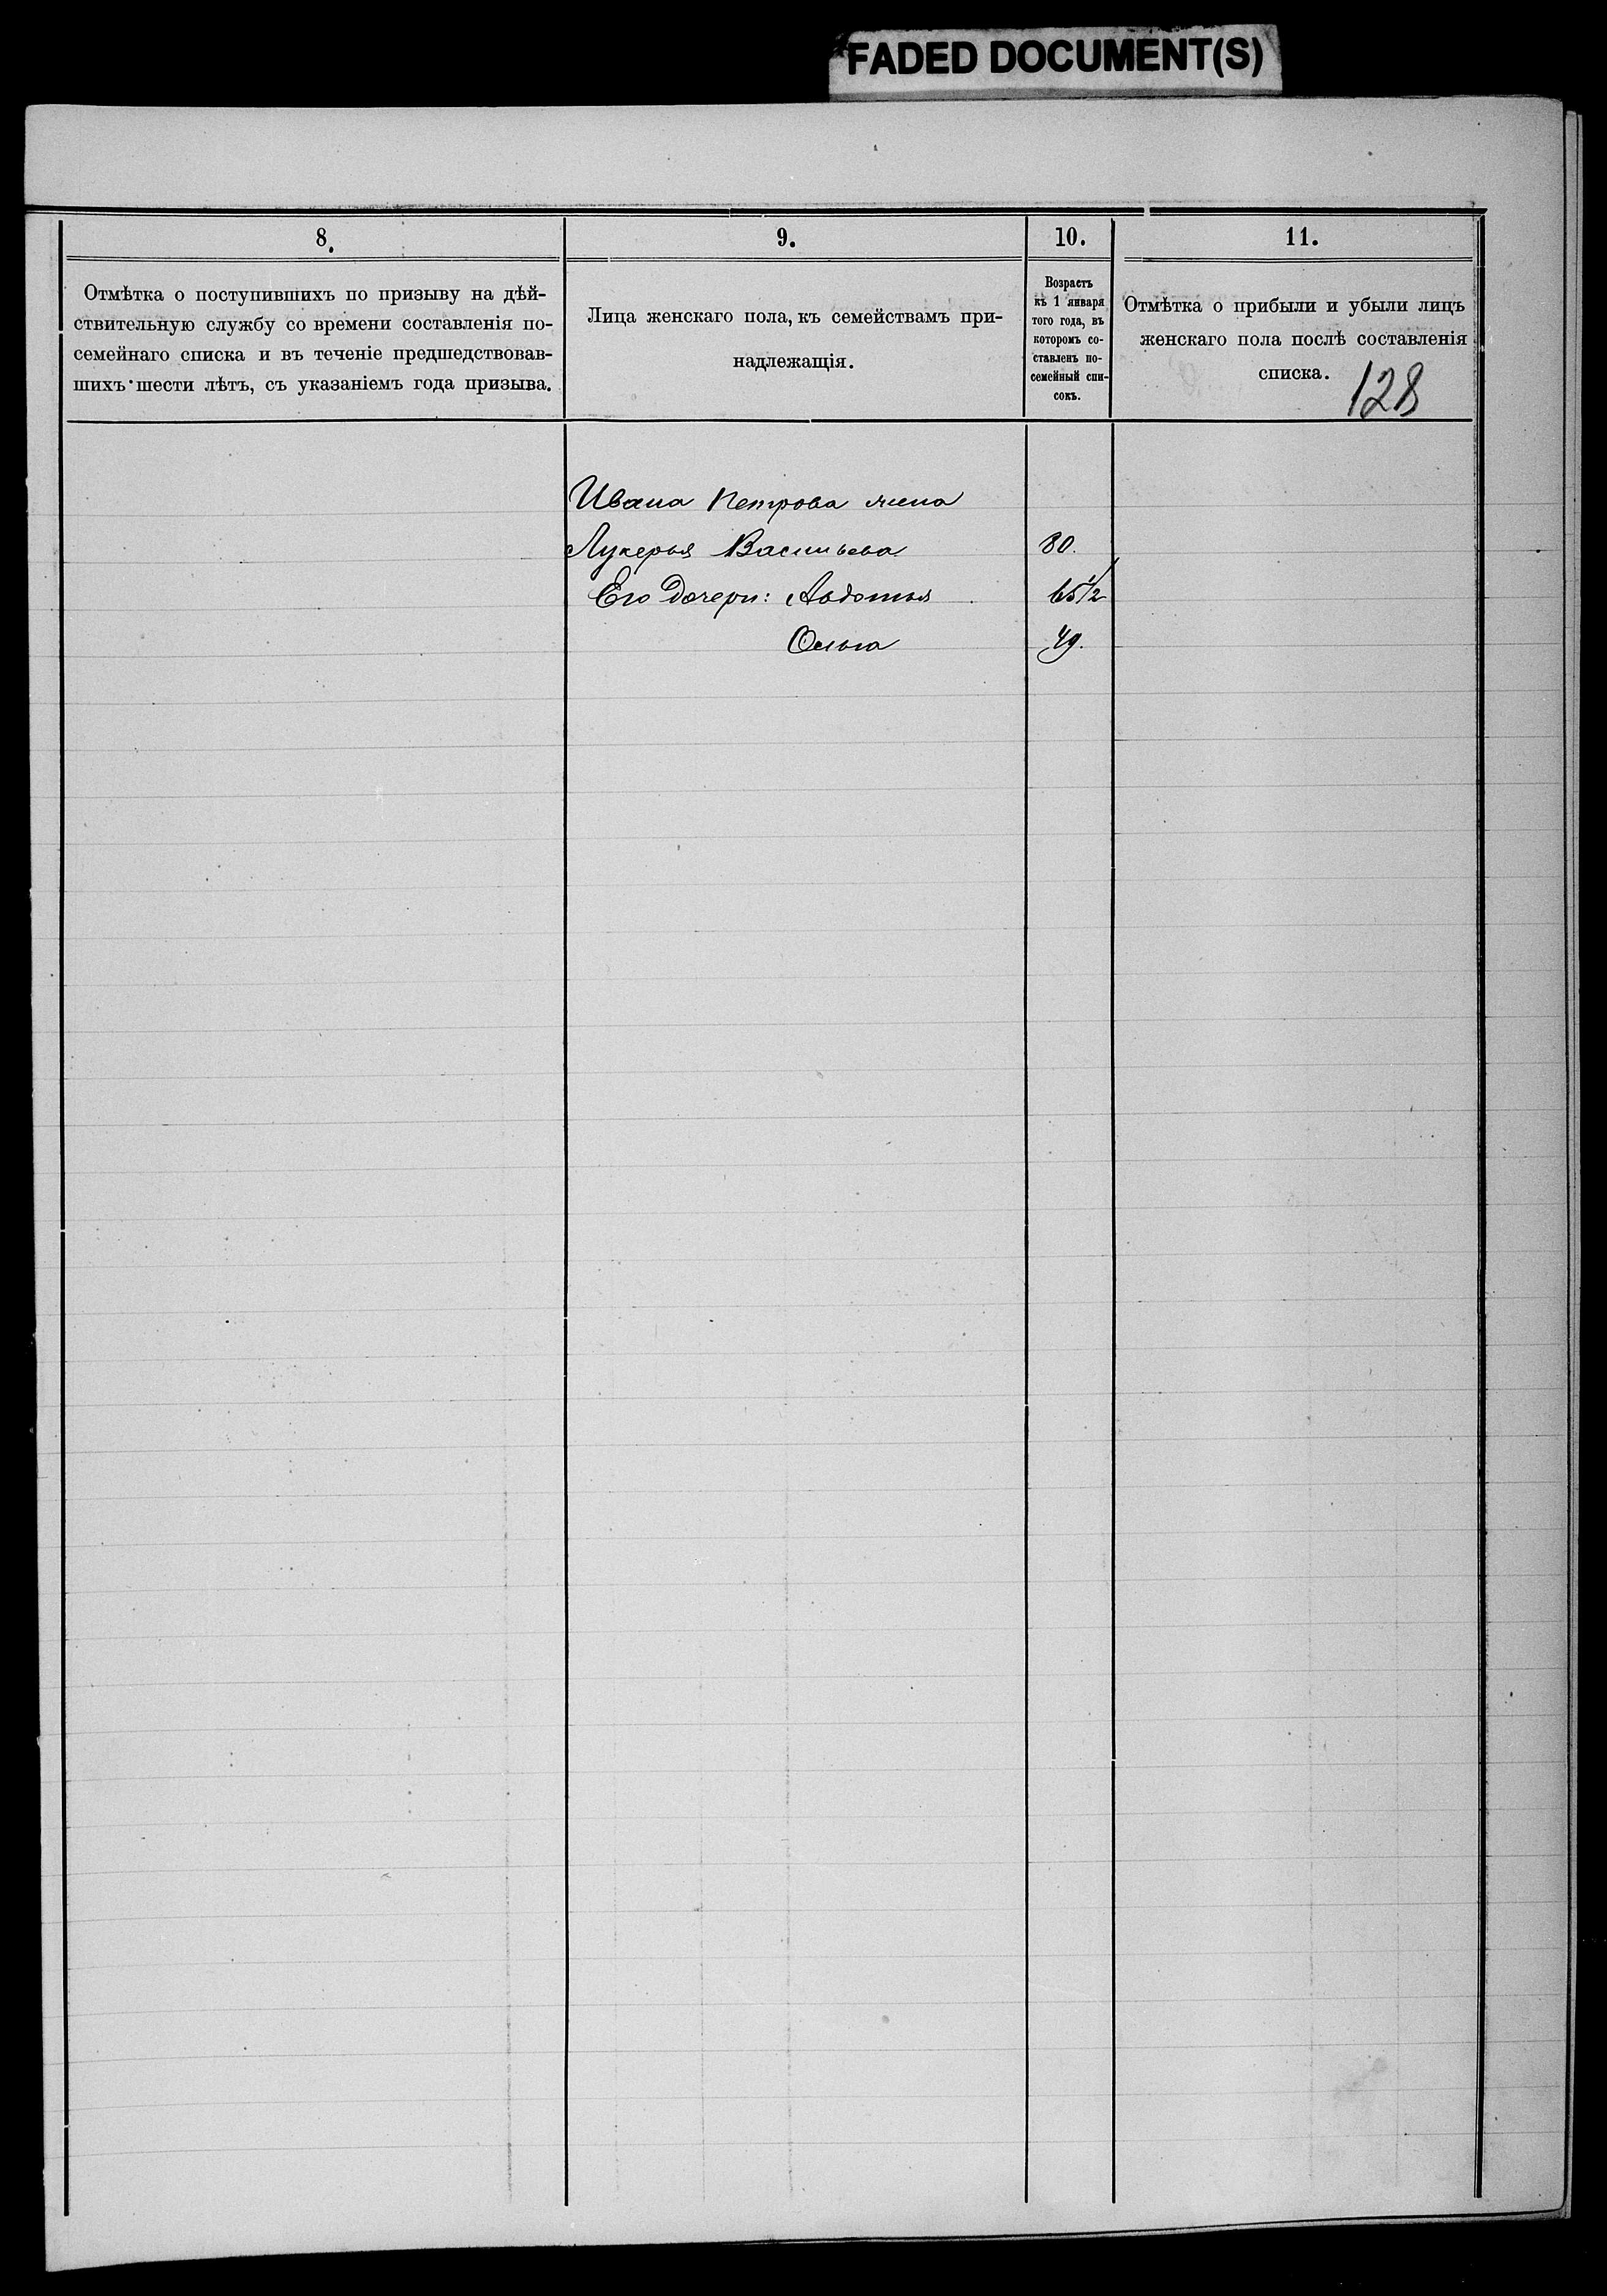 FADED DOCUMENT(S)
8.
Отмѣтка о поступившихъ по призыву на дѣй-
ствительную службу со времени составленія по-
семейнаго списка и въ теченіе предшедствовав-
шихъ шести лѣтъ, съ указаніемъ года призыва.
9.
Лица женскаго пола, къ семействамъ при-
надлежащія.
10.
Возрастъ
къ 1 января
того года, въ
которомъ со-
ставленъ по-
семейный спи-
сокъ.
11.
Отмѣтка о прибыли и убыли лицъ
женскаго пола послѣ составленія
списка.
128
Ивана Петрова жена
Лукерья Васильева 80.
Его Дочери: Авдотья 65 1/2
Ольга 49.